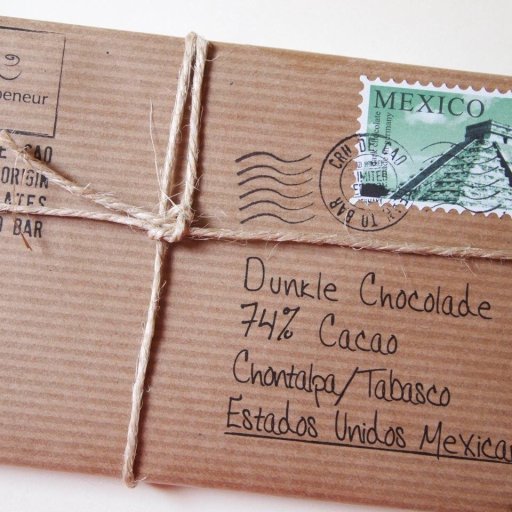 peneur
CAO
ORIGIN
LATES
BAR
MEXICO
Dunkle Chocolade
74% Cacao
Chontalpa/Tabasco
Estados Unidos Mexican